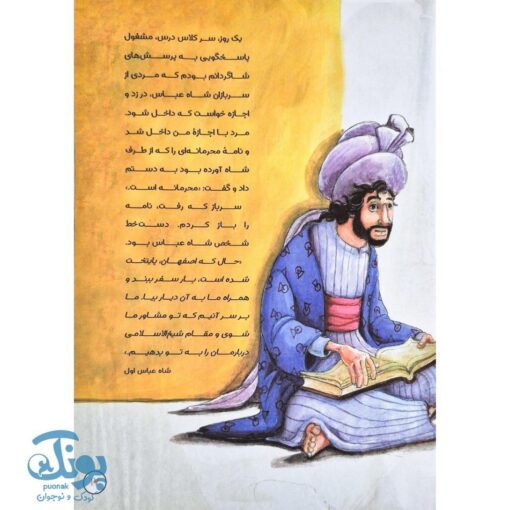 یک روز، سر کلاس درس، مشغول
پاسخگویی به پرسش‌های
شاگردانم بودم که مردی از
سربازان شاه عباس، در زد و
اجازه خواست که داخل شود.
مرد با اجازهٔ من داخل شد
و نامهٔ محرمانه‌ای را که از طرف
شاه آورده بود به دستم
داد و گفت: «محرمانه است.»
سرباز که رفت، نامه
را باز کردم. دست‌خط
شخص شاه عباس بود.
«حال که اصفهان، پایتخت
شده است، بار سفر ببند و
همراه ما به آن دیار بیا. ما
بر سر آنیم که تو مشاور ما
شوی و مقام شیخ‌الاسلامی
دربارمان را به تو بدهیم.»
شاه عباس اول
پونک
puonak
کودک و نوجوان